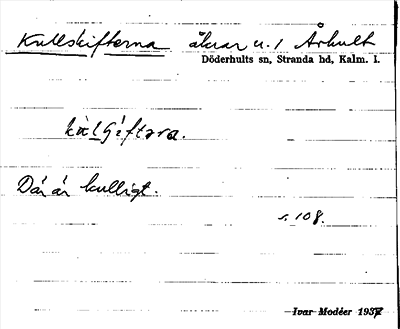 Kullskifterna åkrar u. 1 Århult
Döderhults sn, Stranda hd, Kalm. l.
Där är kulligt.
s. 108.
Ivar Modéer 1937